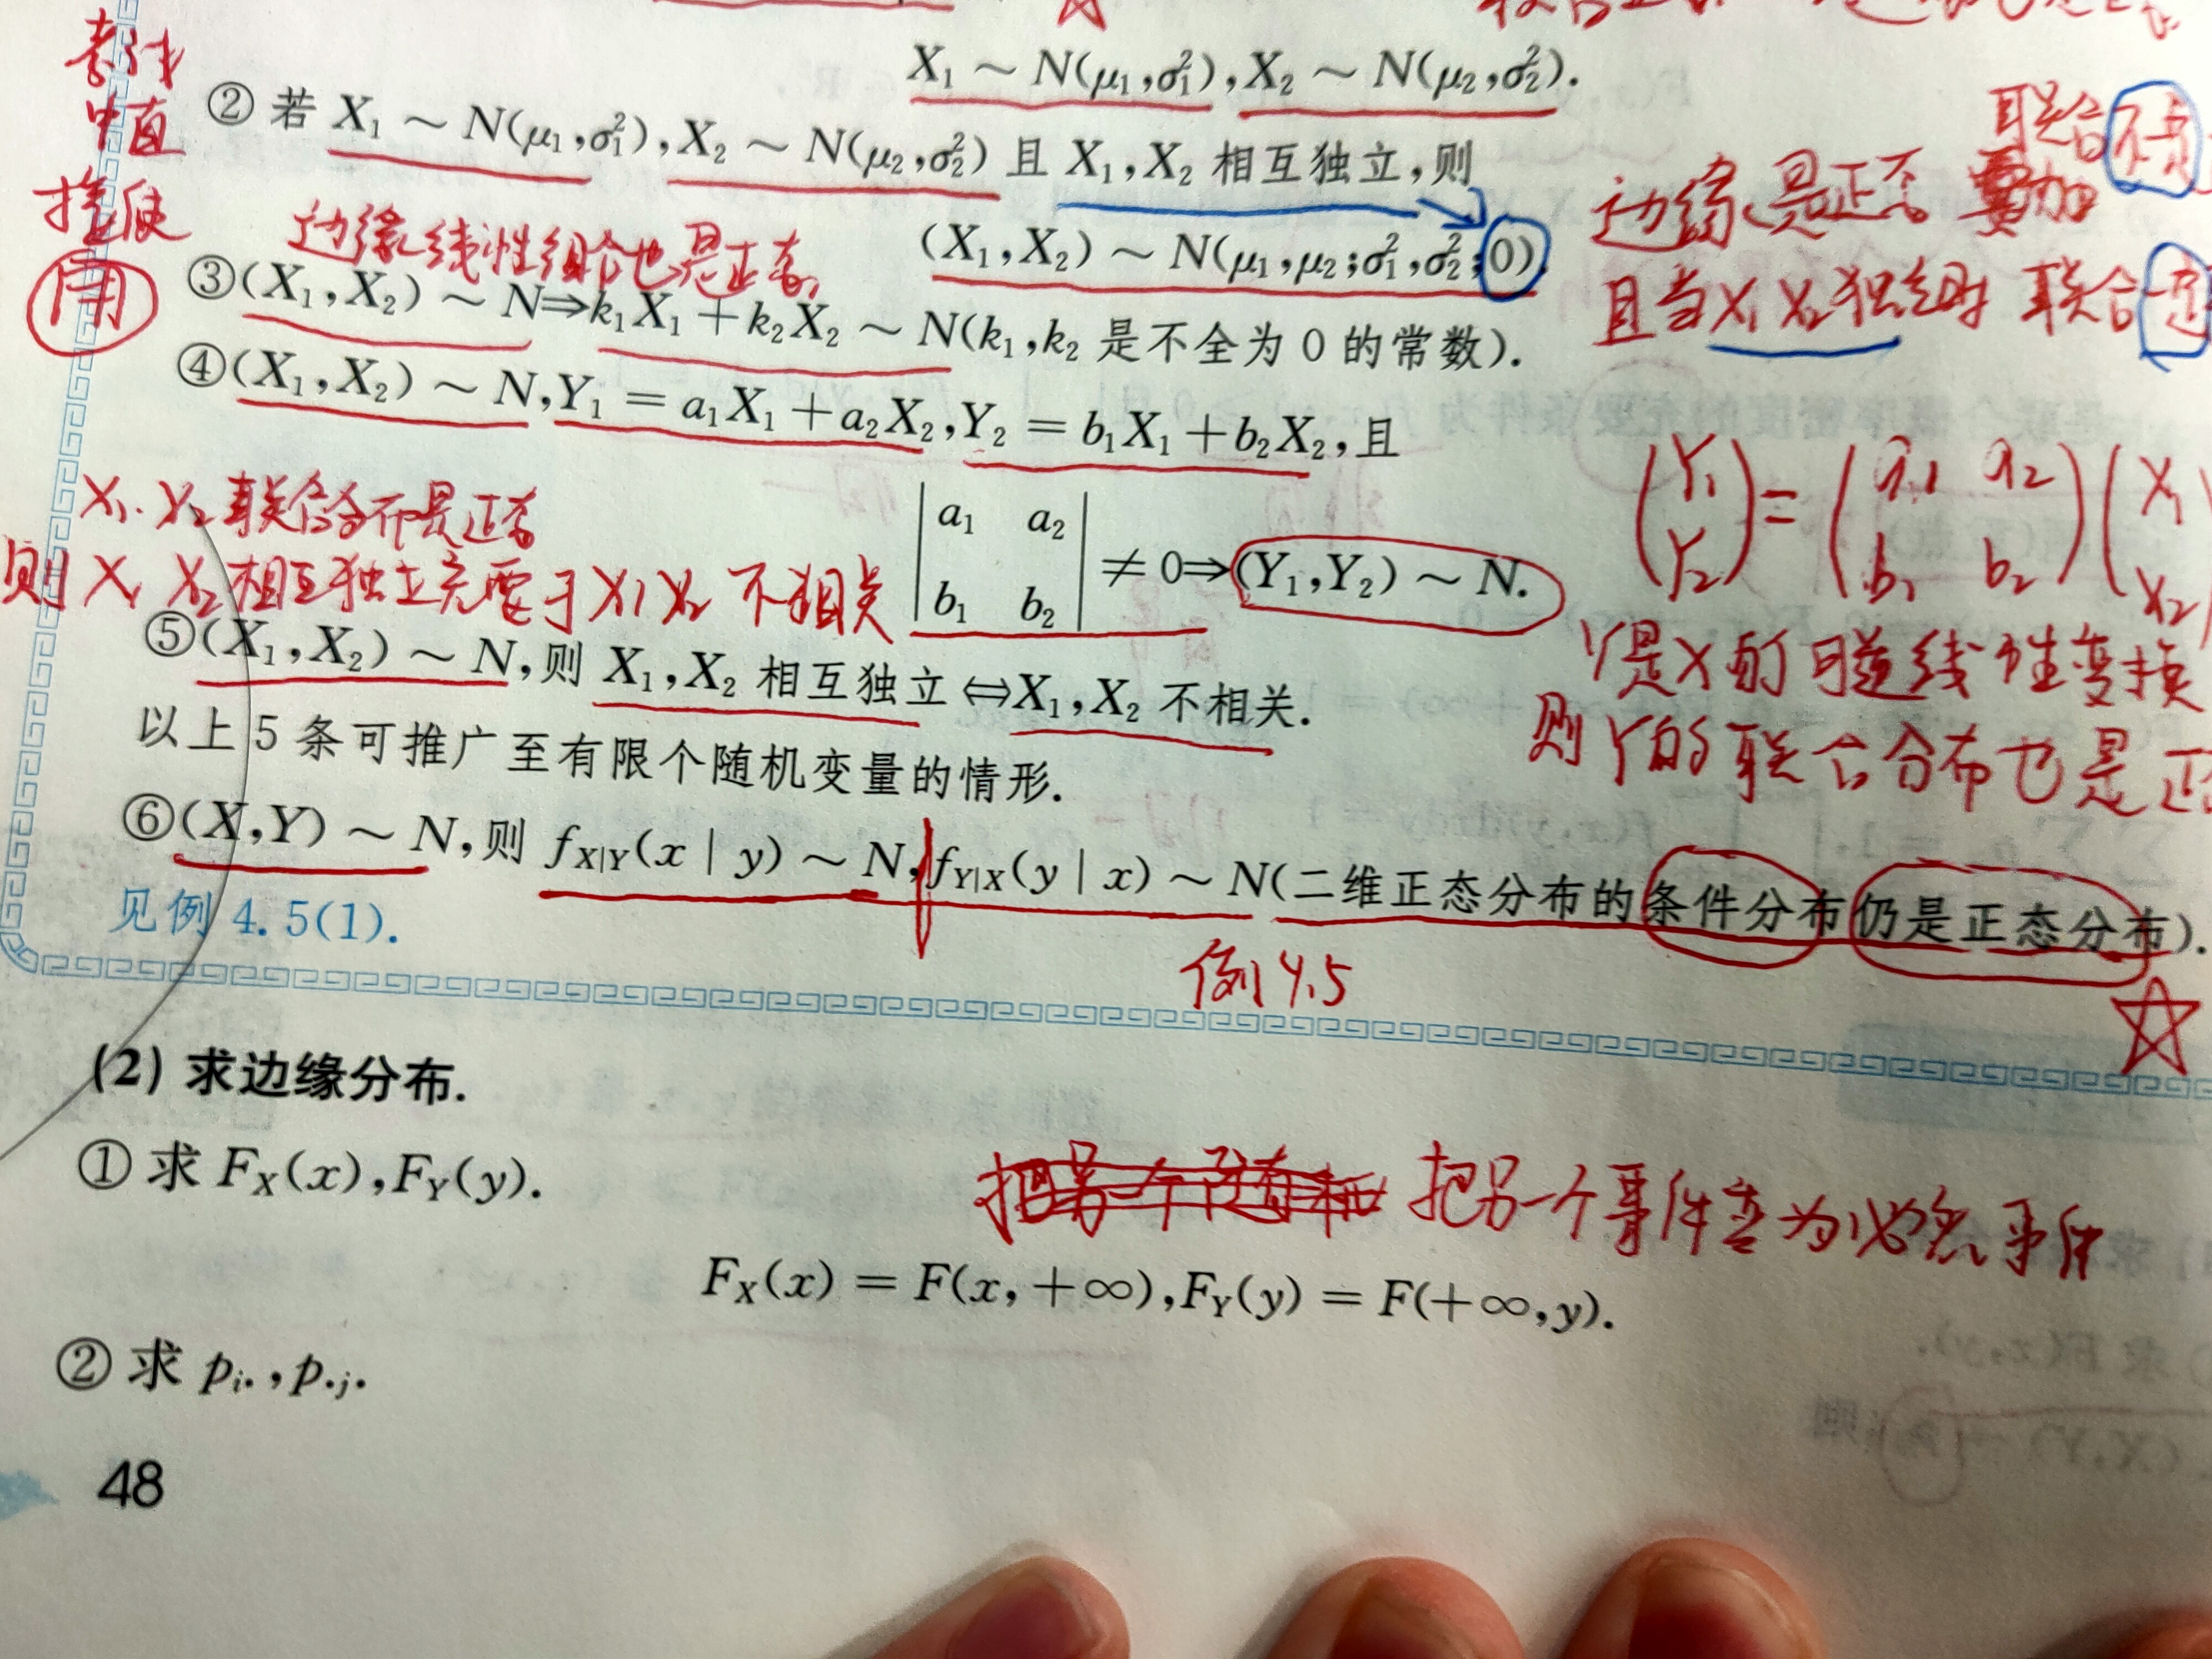 X₁ ~ N(μ₁,σ₁²),X₂ ~ N(μ₂,σ₂²).
考试
中直
接使
用
② 若 X₁ ~ N(μ₁,σ₁²),X₂ ~ N(μ₂,σ₂²) 且 X₁,X₂ 相互独立,则
联合不一定
边缘是正态 要加
(X₁,X₂) ~ N(μ₁,μ₂;σ₁²,σ₂²;0).
且当X₁ X₂独立时 联合
边缘线性组合也是正态
③(X₁,X₂) ~ N⇒k₁X₁+k₂X₂ ~ N(k₁,k₂ 是不全为 0 的常数).
④(X₁,X₂) ~ N,Y₁ = a₁X₁+a₂X₂,Y₂ = b₁X₁+b₂X₂,且
|a₁ a₂|
|b₁ b₂| ≠ 0⇒(Y₁,Y₂) ~ N.
(Y₁) = (a₁ a₂)(X₁
(Y₂) (b₁ b₂)(X₂
X₁. X₂联合分布是正态
则 X₁ X₂相互独立充要于X₁X₂不相关
Y是X的可逆线性变换
则Y的联合分布也是正
⑤(X₁,X₂) ~ N,则 X₁,X₂ 相互独立⇔X₁,X₂ 不相关.
以上 5 条可推广至有限个随机变量的情形.
⑥(X,Y) ~ N,则 f_{X|Y}(x | y) ~ N,f_{Y|X}(y | x) ~ N(二维正态分布的条件分布仍是正态分布).
见例 4.5(1).
例4.5
(2) 求边缘分布.
① 求 F_X(x),F_Y(y).
把另一个随机 把另一个事件变为必然事件
F_X(x) = F(x,+∞),F_Y(y) = F(+∞,y).
② 求 p_{i·},p_{·j}.
48